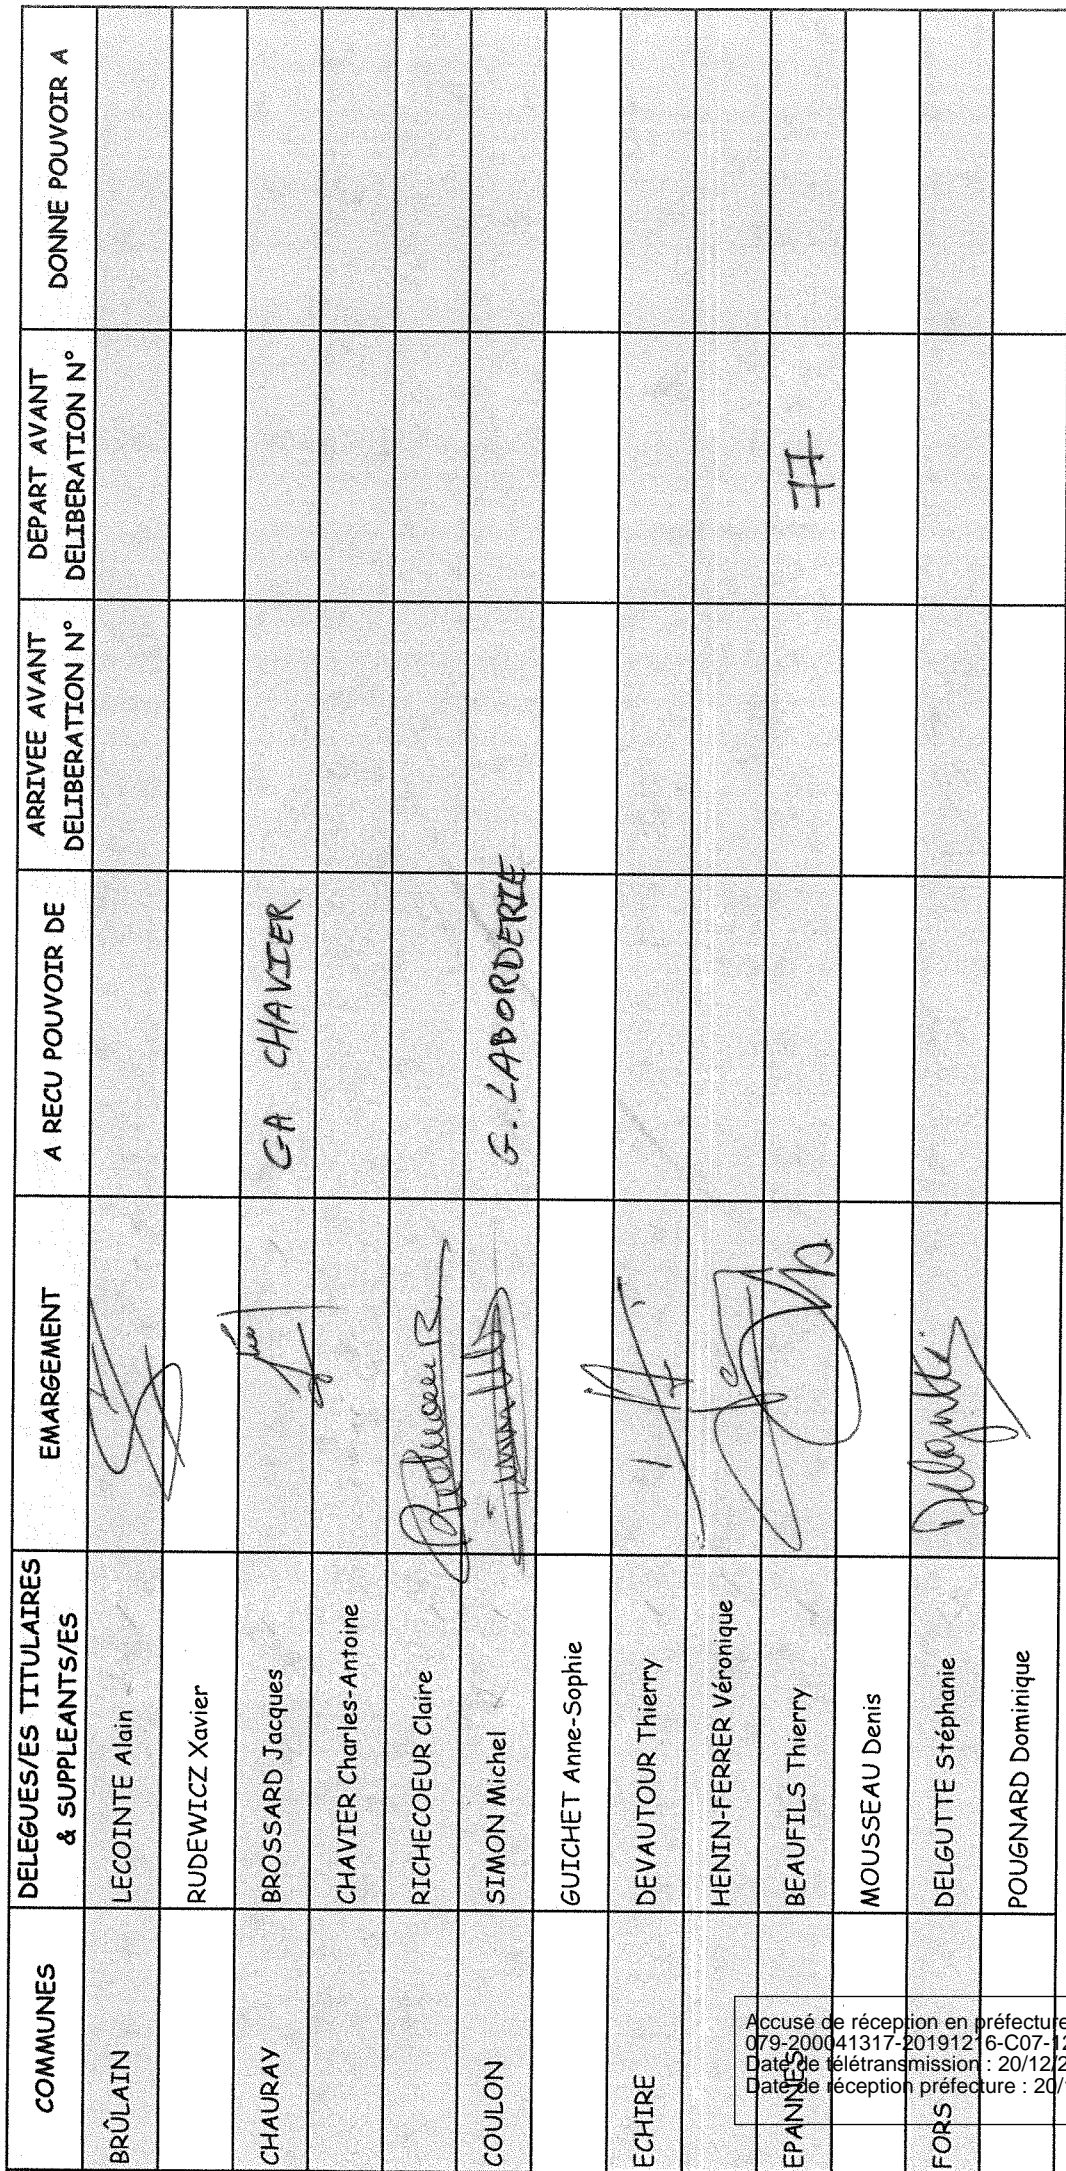 COMMUNES DELEGUES/ES TITULAIRES & SUPPLEANTS/ES EMARGEMENT A RECU POUVOIR DE ARRIVEE AVANT DELIBERATION N° DEPART AVANT DELIBERATION N° DONNE POUVOIR A
BRÛLAIN LECOINTE Alain
RUDEWICZ Xavier
CHAURAY BROSSARD Jacques CA CHAVIER
CHAVIER Charles-Antoine
RICHECOEUR Claire
COULON SIMON Michel G. LABORDERIE
GUICHET Anne-Sophie
ECHIRE DEVAUTOUR Thierry
HENIN-FERRER Véronique
EPANNES BEAUFILS Thierry 77
MOUSSEAU Denis
FORS DELGUTTE Stéphanie Delgutte
POUGNARD Dominique
Accusé de réception en préfecture
079-200041317-20191216-C07-12
Date de télétransmission : 20/12/2
Date de réception préfecture : 20/